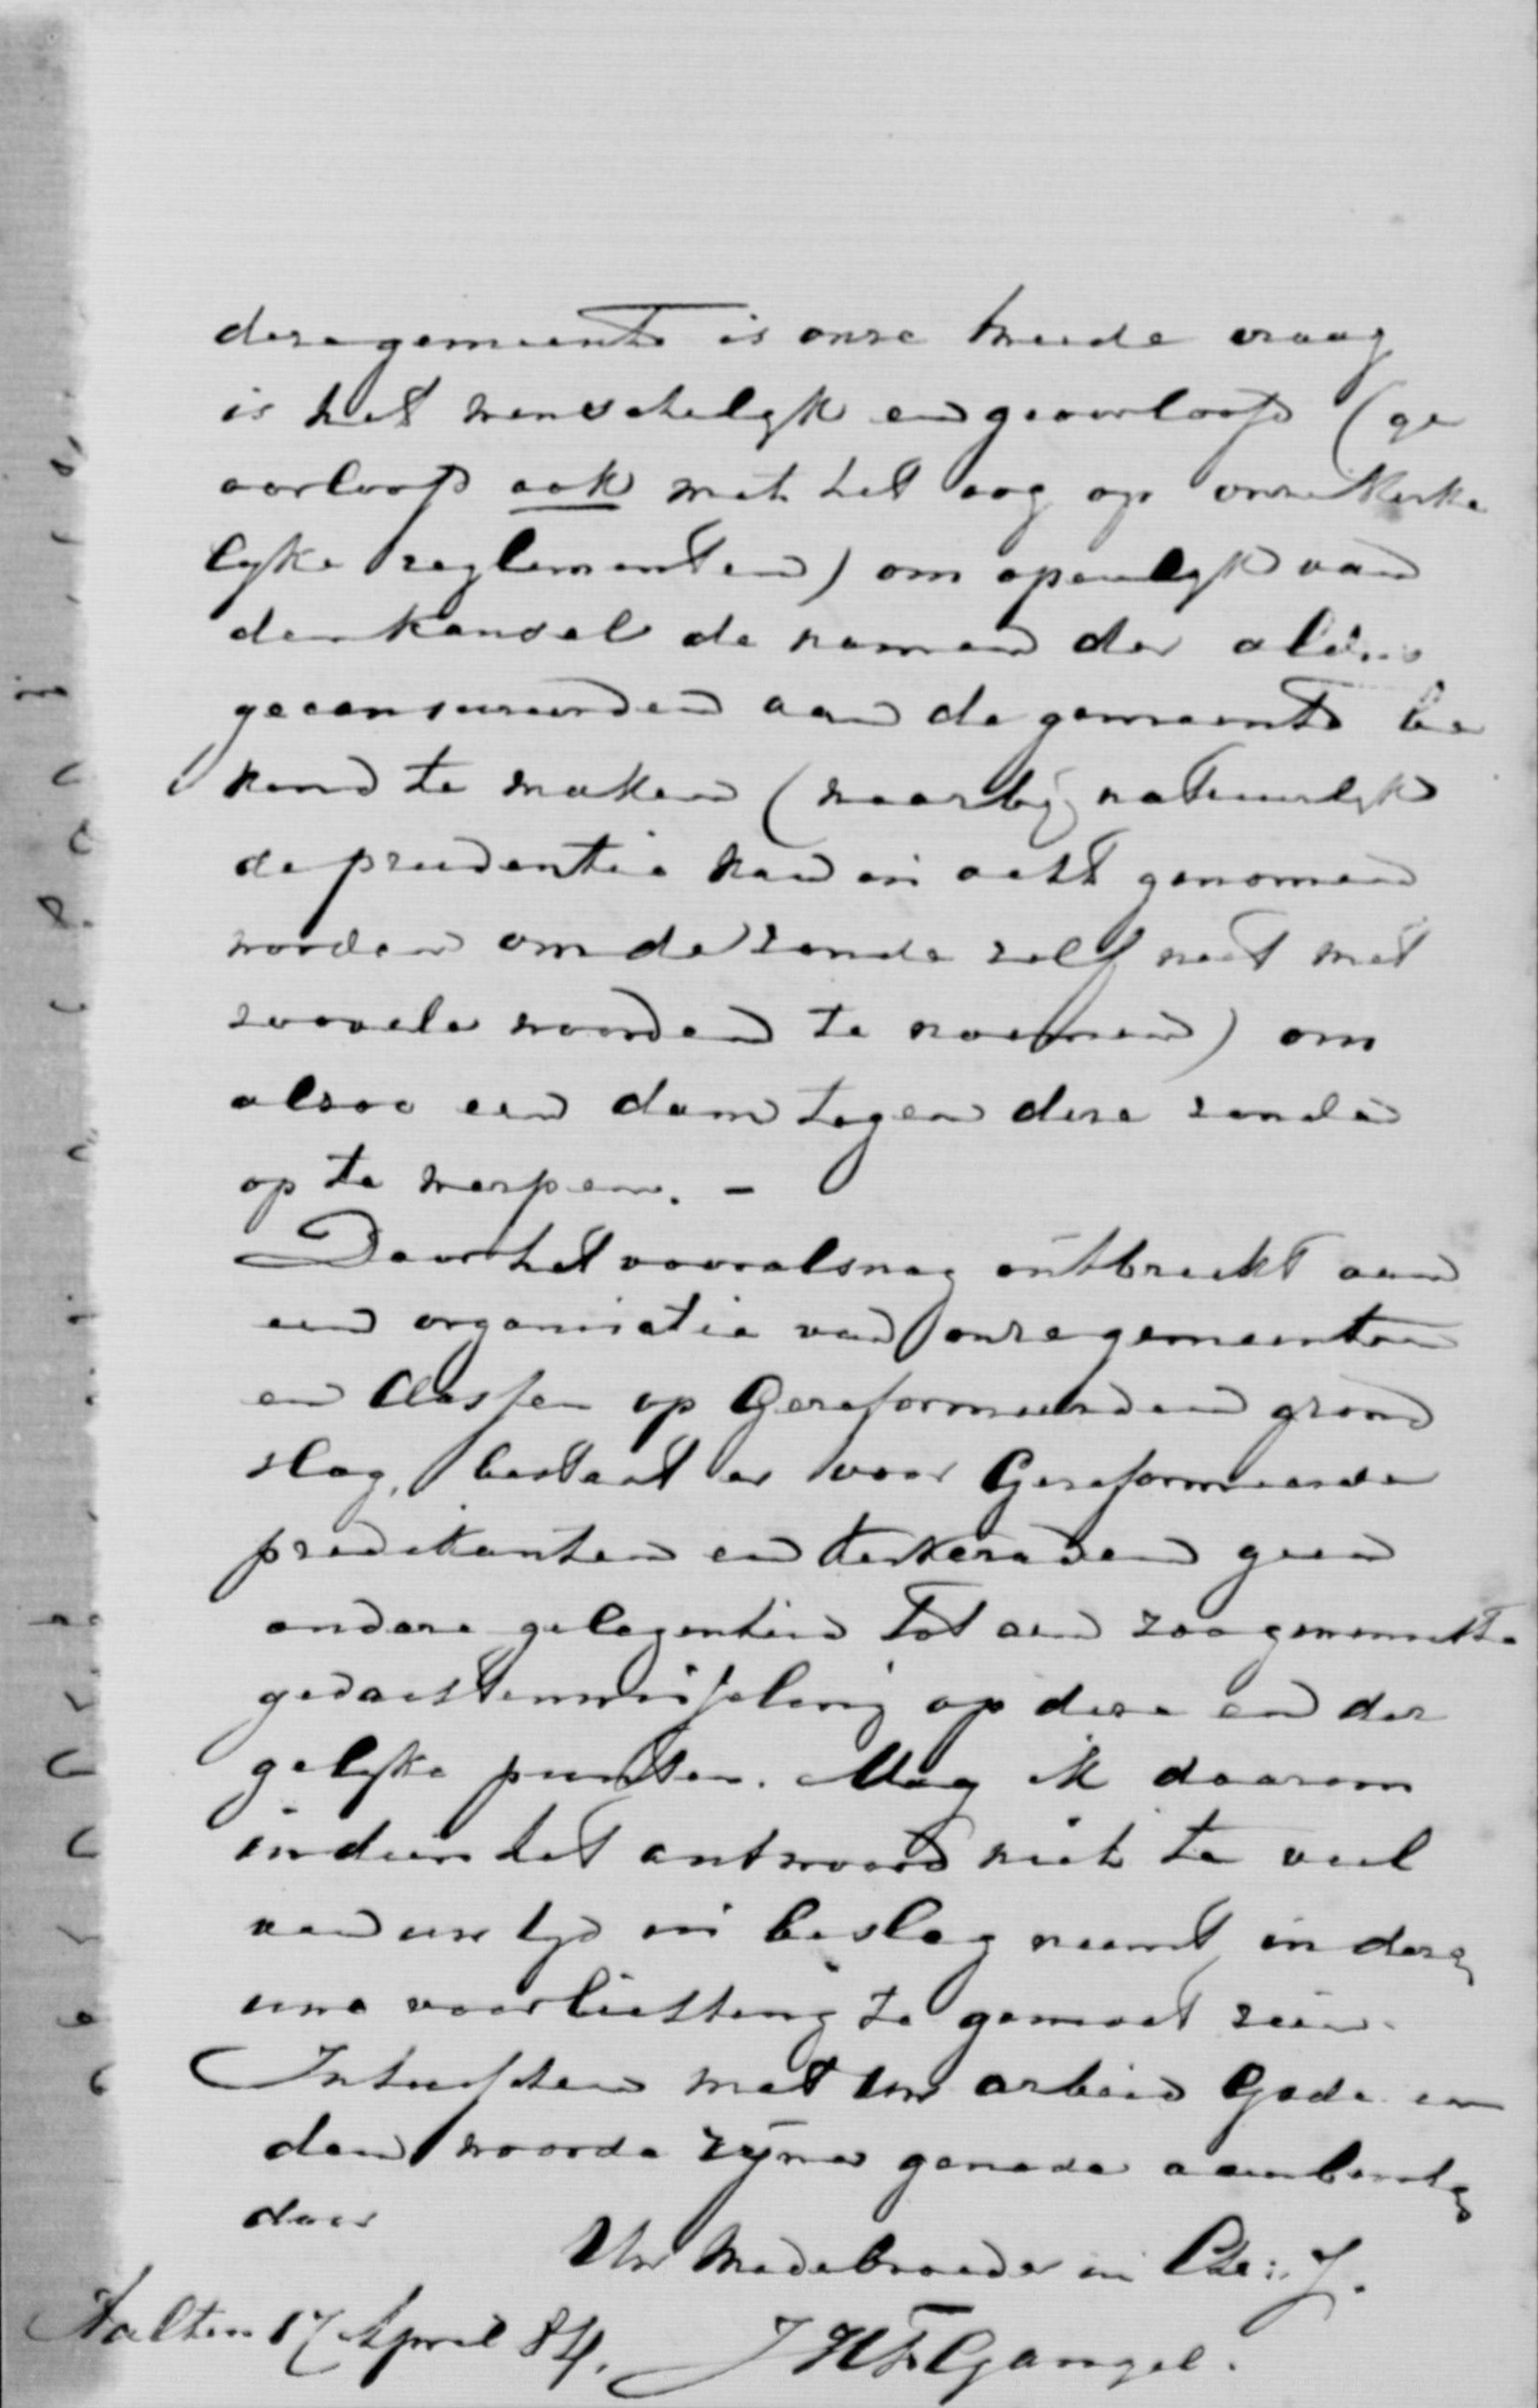 deze gemeente is onze tweede vraag
is het wenschelyk en geoorloofd (ge
oorloofd ook met het oog op onze kerke
lyke reglementen) om openlyk van
den kansel de namen der aldus
gecensureerden aan de gemeente be
kend te maken (waarby natuurlyk
de prudentie kan in acht genomen
worden om de zonde zelf niet met
zooveele woorden te noemen) om
alzoo een dam tegen deze zonde
op te werpen. -
Daar het vooralsnog ontbreekt aan
een organisatie van onze gemeenten
en Classen op Gereformeerden grond
slag, bestaat er voor Gereformeerde
predikanten en kerkeraden geen
andere gelegenheid tot een zoo gewenschte
gedachtenwisseling op deze en der
gelyke punten. Mag ik daarom
indien het antwoord niet te veel
van uw tyd in beslag neemt, in deze
uwe voorlichting te gemoet zien.
Intusschen met uw arbeid Gode en
den woorde zyner genade aanbevolen
door
Uw Medebroeder in Chr: J.
Aalten 17 April 84. J H F Gangel.